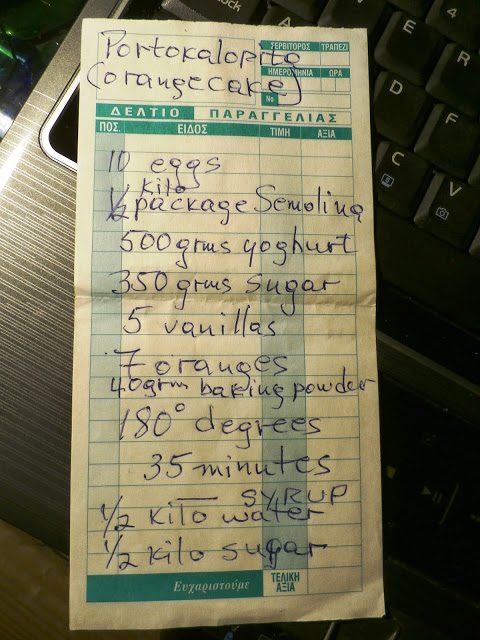 lock
Portokalopita
(orangecake)
ΣΕΡΒΙΤΟΡΟΣ ΤΡΑΠΕΖΙ
ΗΜΕΡΟΜΗΝΙΑ ΩΡΑ
No
ΔΕΛΤΙΟ ΠΑΡΑΓΓΕΛΙΑΣ
ΠΟΣ. ΕΙΔΟΣ ΤΙΜΗ ΑΞΙΑ
10 eggs
kilo
1/2 package Semolina
500 grms yoghurt
350 grms sugar
5 vanillas
7 oranges
40grm baking powder
180° degrees
35 minutes
— SYRUP
1/2 kilo water
1/2 kilo sugar
Ευχαριστούμε
ΤΕΛΙΚΗ
ΑΞΙΑ
A
D
F
C
V
4